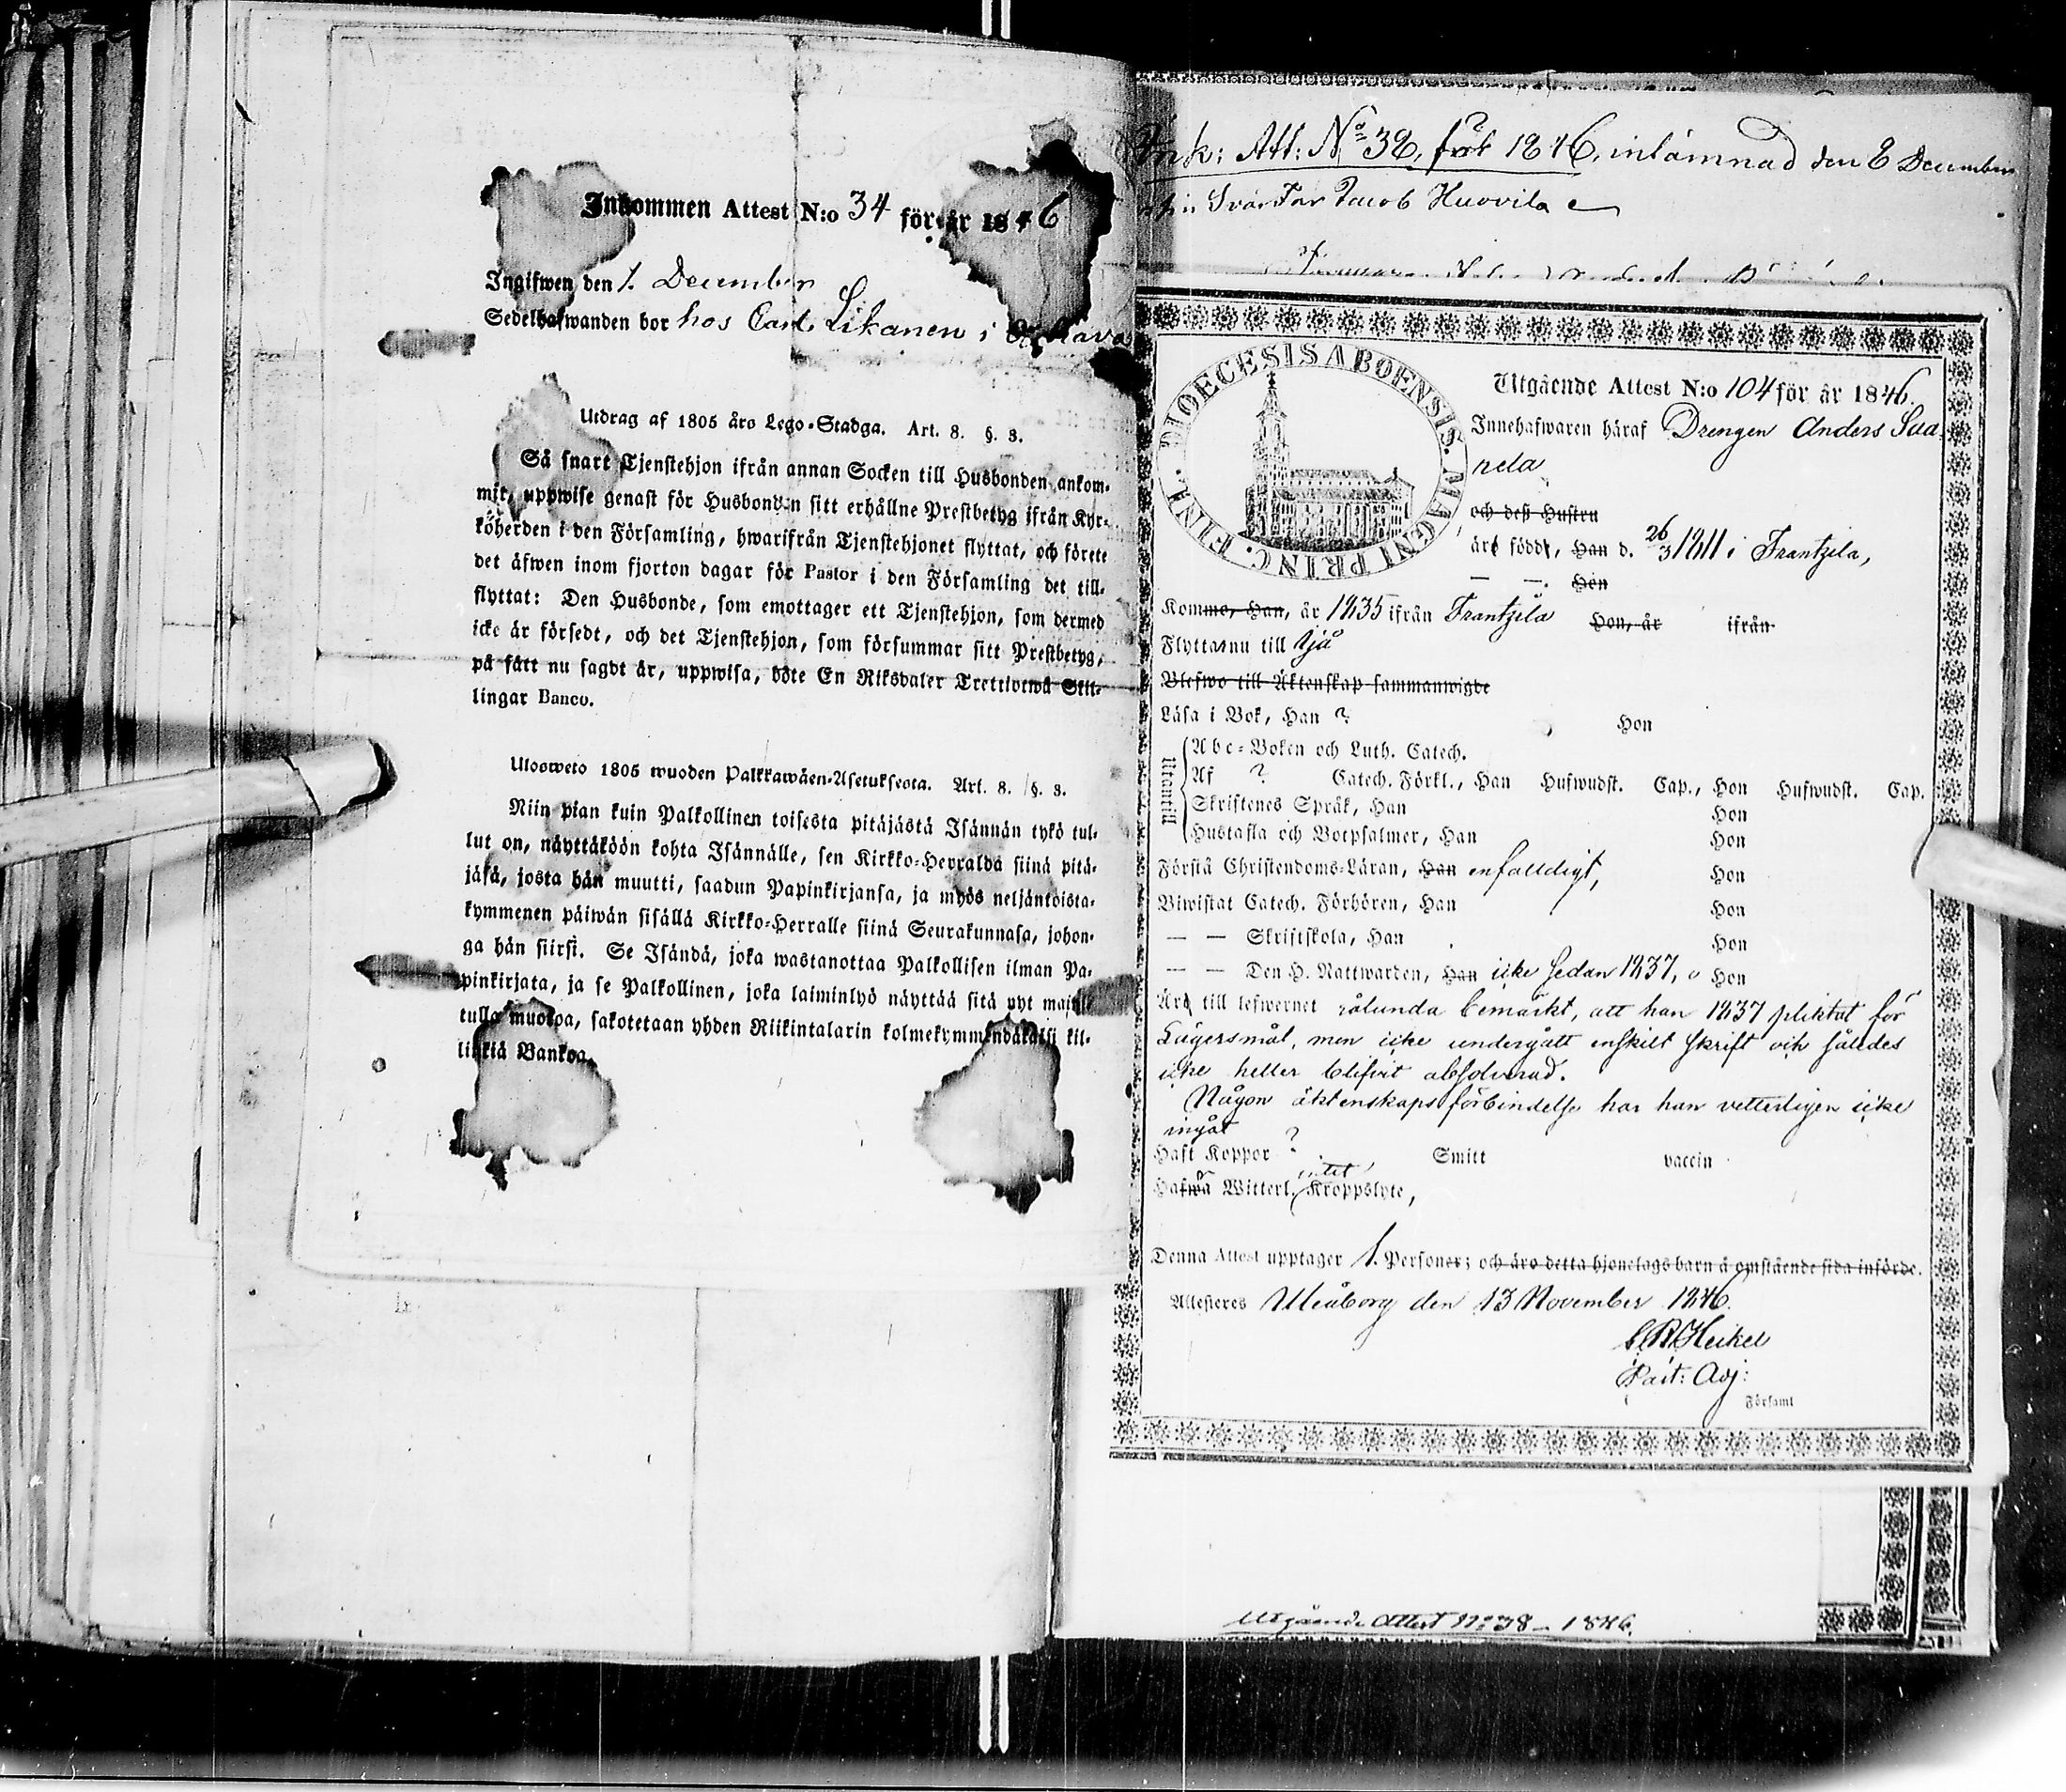 Inkommen Attest N:o 34 för år 1846
Ingifwen den 1. December
Sedelhafwanden bor hos Carl Likanen i
Utdrag af 1805 års Lego-Stadga. Art. 8. §. 3.
Så snart Tjenstehjon ifrån annan Socken till Husbonden ankom-
mit, uppwise genast för Husbonden sitt erhållne Prestbetyg ifrån Kyr-
koherden i den Församling, hwarifrån Tjenstehjonet flyttat, och förete
det äfwen inom fjorton dagar för Pastor i den Församling det till-
flyttat: Den Husbonde, som emottager ett Tjenstehjon, som dermed
icke är försedt, och det Tjenstehjon, som försummar sitt Prestbetyg,
på sätt nu sagdt är, uppwisa, böte En Riksdaler Trettiotwå Skil-
lingar Banco.
Ulosweto 1805 wuoden Palkkawäen-Asetuksesta. Art. 8. §. 3.
Niin pian kuin Palkollinen toisesta pitäjästä Isännän tykö tul-
lut on, näyttäköön kohta Isännälle, sen Kirkko-Herralda siinä pitä-
jäsä, josta hän muutti, saadun Papinkirjansa, ja myös neljäntoista-
kymmenen päiwän sisällä Kirkko-Herralle siinä Seurakunnasa, johon-
ga hän siirsi. Se Isändä, joka wastanottaa Palkollisen ilman Pa-
pinkirjata, ja se Palkollinen, joka laiminlyö näyttää sitä nyt mainit-
tulla muotoa, sakotetaan yhden Riikintalarin kolmekymmendäkaksi kil-
lingiä Bankoa.
Ink: Att: No 38, för 1846, inlämnad den 8 December
Svär Far Jacob Huovila
Utgående Attest N:o 104 för år 1846.
DIOECESIS ABOENSIS. MAGNI PRINC. FINL.
Innehafwaren häraf Drengen Anders Saa
nela
och deß Hustru
äro födde, Han d. 26/3 1811 i Frantzila,
— —. Hon
Komne, Han, år 1835 ifrån Frantzila Hon, år ifrån
Flytta nu till Ijå
Blefwo till Äktenskap sammanwigde
Läsa i Bok, Han ? Hon
Utantill
Abc-Boken och Luth. Catech.
Af ? Catech. Förkl., Han Hufwudst. Cap., Hon Hufwudst. Cap.
Skriftenes Språk, Han Hon
Hustafla och Botpsalmer, Han Hon
Förstå Christendoms-Läran, Han enfalldigt, Hon
Biwistat Catech. Förhören, Han Hon
— — Skriftskola, Han Hon
— — Den H. Nattwarden, Han icke sedan 1837, Hon
Äro till lefwernet sålunda bemärkt, att han 1837 pliktat för
Lägersmål, men icke undergått enskilt skrift och således
icke heller blifvit absolverad.
Någon äktenskaps förbindelse har han vetterligen icke
ingåt
Haft Koppor ? Smitt vaccin
intet
Hafwa Witterl. Kroppslyte,
Denna Attest upptager 1. Personer; och äro detta hjonelags barn å omstående sida införde.
Attesteres Uleåborg den 13 November 1846.
C. R. Heikel
Past: Adj:
Församl
Utgående Attest No 38 - 1846.